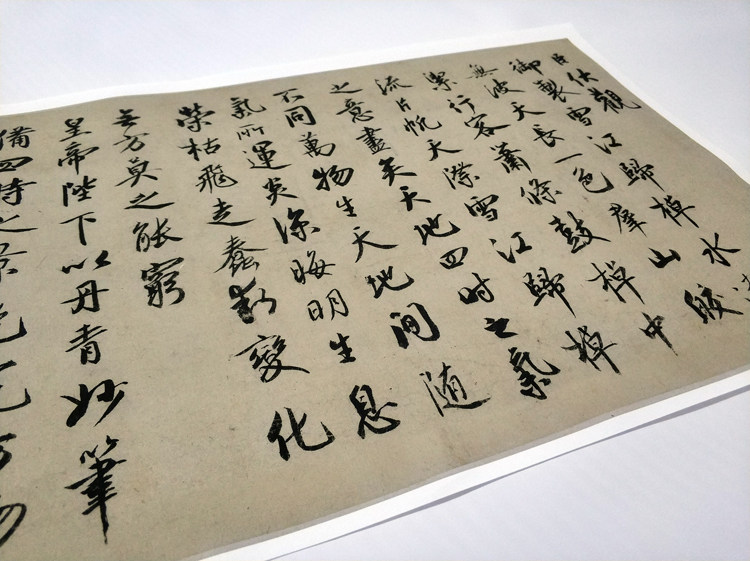 臣伏觀
御製雪江歸棹水
無波天長一色羣山皎
潔行客蕭條鼓棹中
流片帆天際雪江歸棹
之意盡矣天地四時之氣
不同萬物生天地間隨
氣所運炎涼晦明生息
榮枯飛走蠢動變化
無方莫之能窮
皇帝陛下以丹青妙筆
備四時之景色